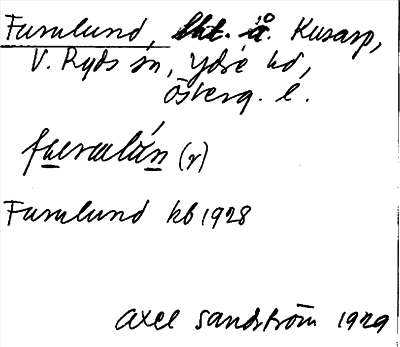 Furulund, lht. å Kusarp,
V. Ryds sn, Ydre hd,
Österg. l.
furulún (r)
Furulund kb 1928
Axel Sandström 1929